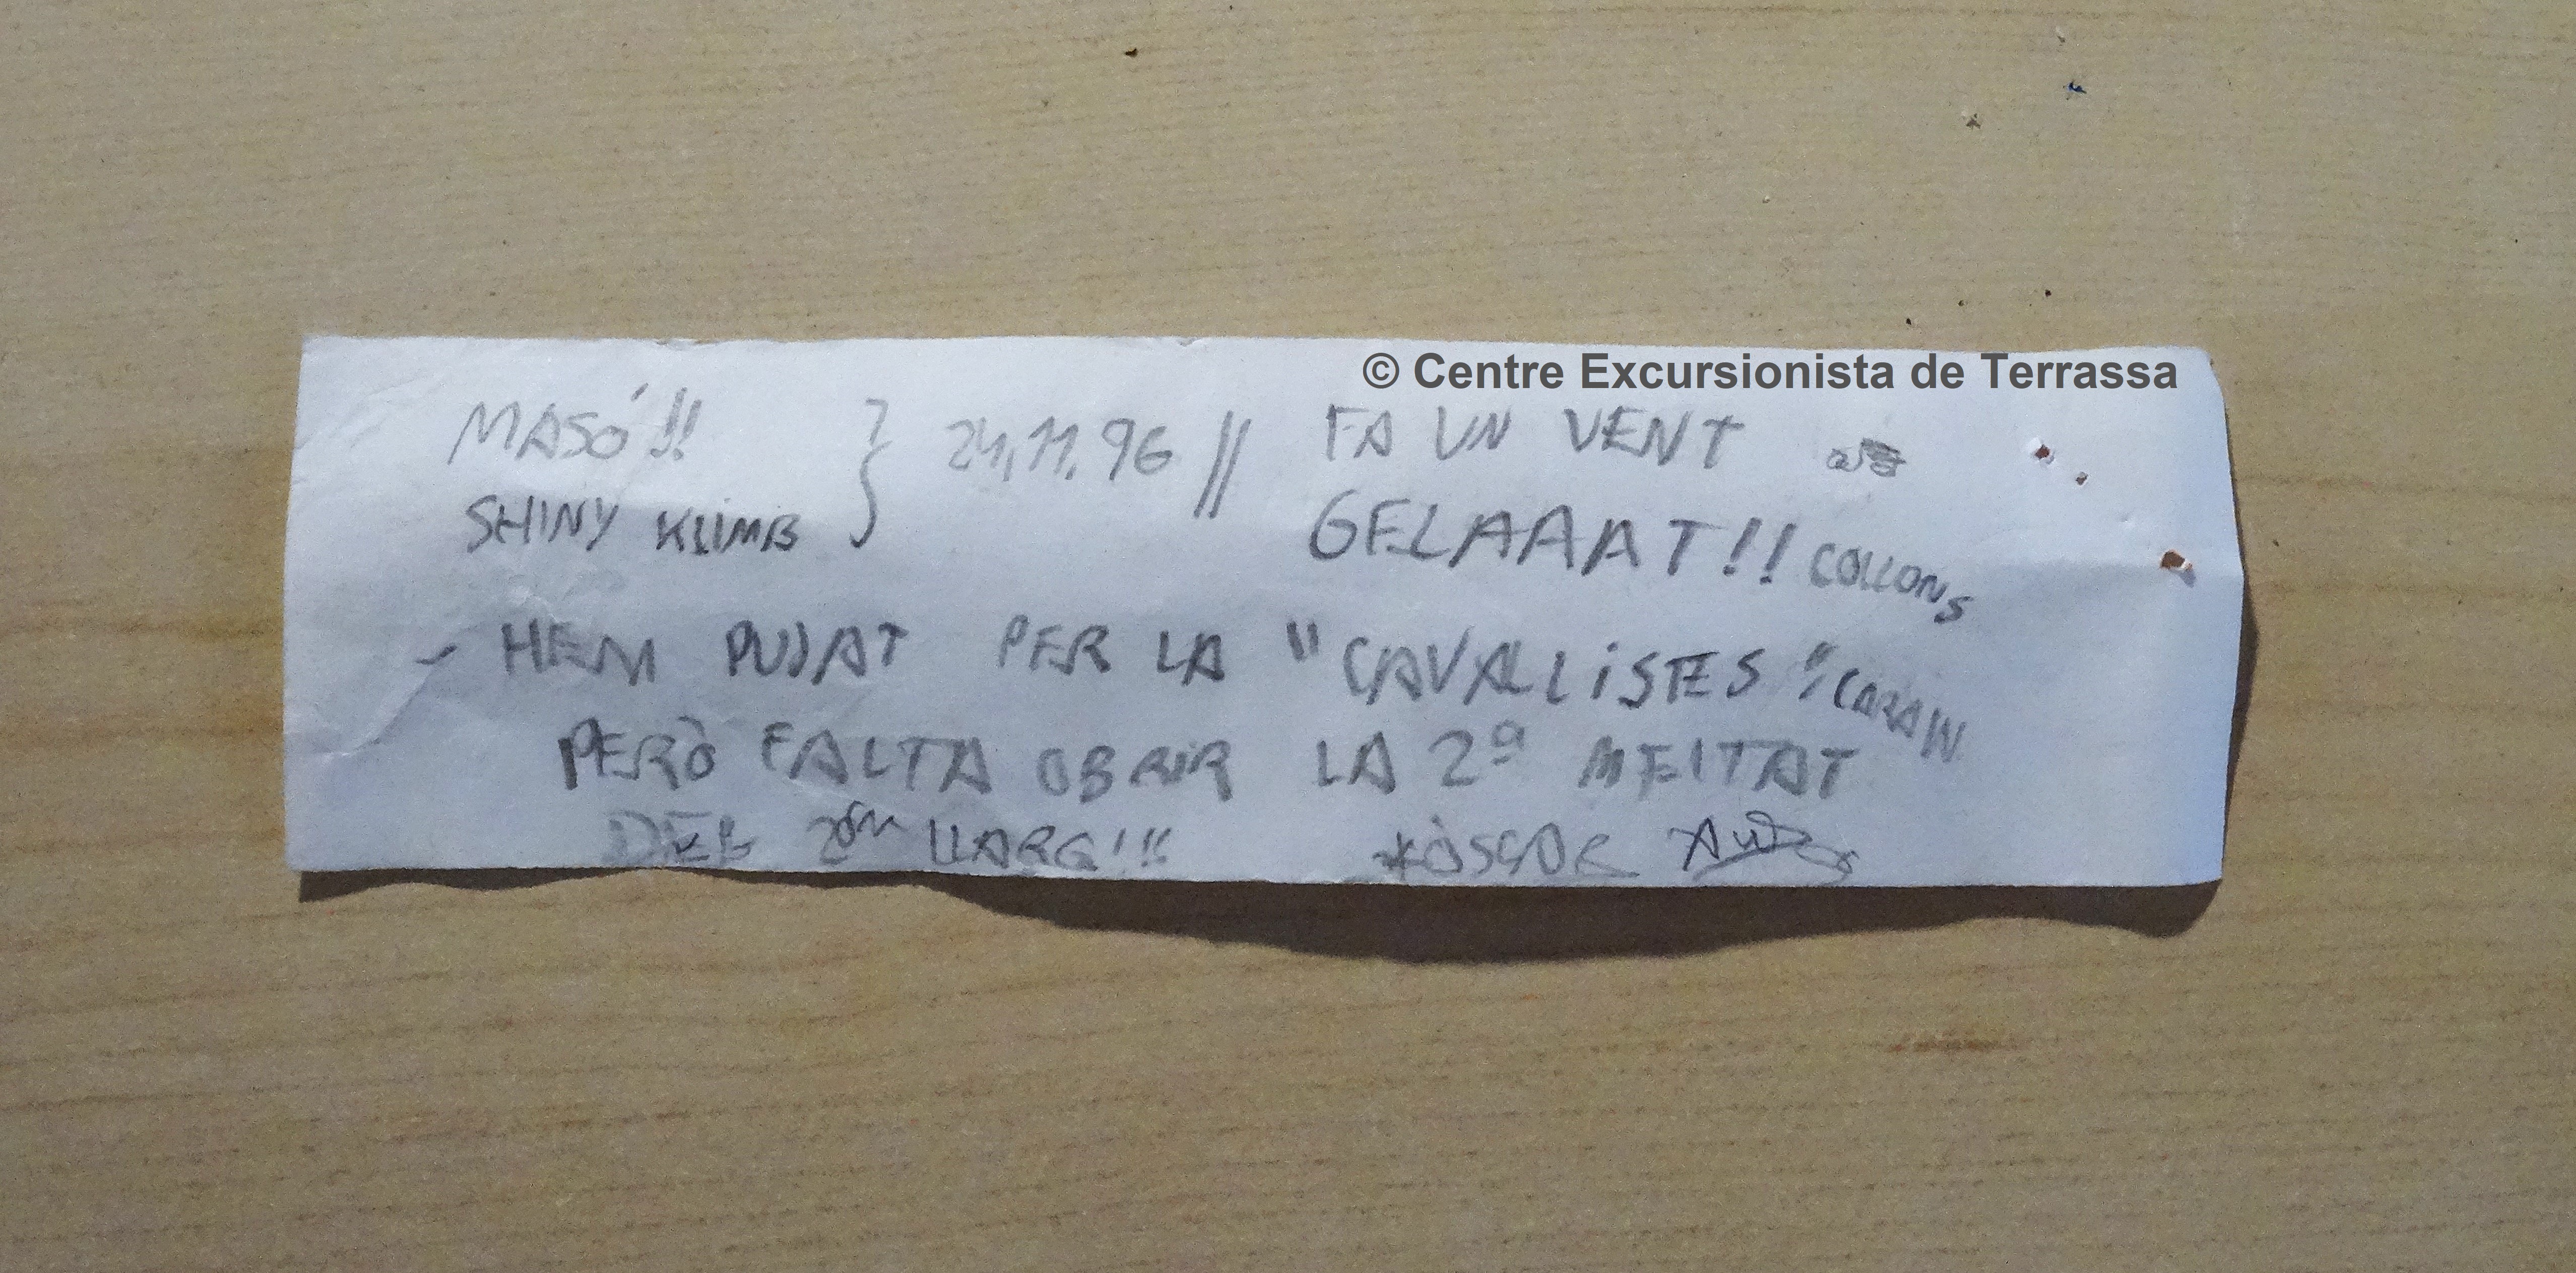 © Centre Excursionista de Terrassa
MASÓ!! } 24.11.96 // FA UN VENT
SHINY KLIMB GELAAAT!! COLLONS
- HEM PUJAT PER LA "CAVALLISTES" CARAM
PERÒ FALTA OBRIR LA 2ª MEITAT
DEL 2ON LLARG!!!